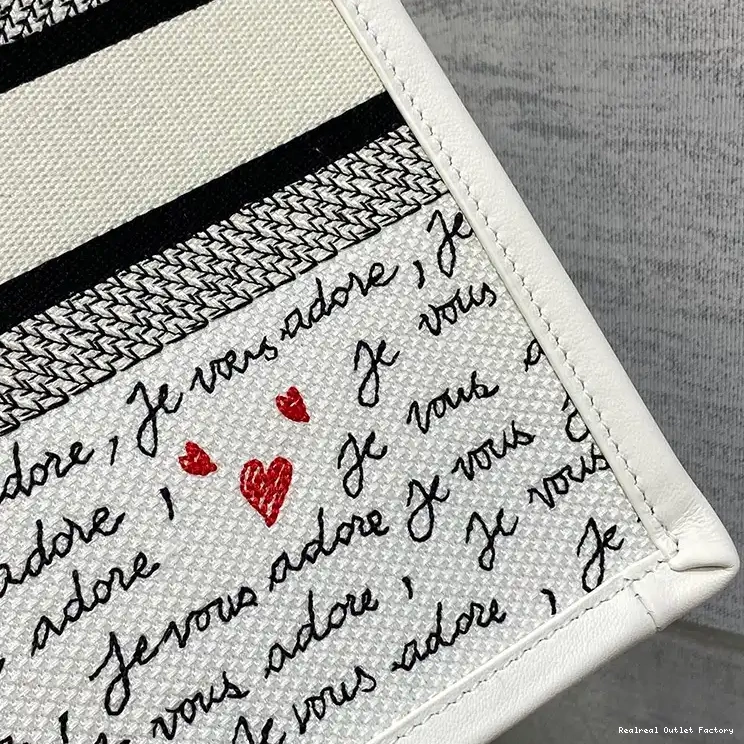 adore, Je vous adore, Je
adore, Je vous
adore Je vous
Je vous adore Je vous
vous adore, Je vous
Je vous adore, Je
Realreal Outlet Factory